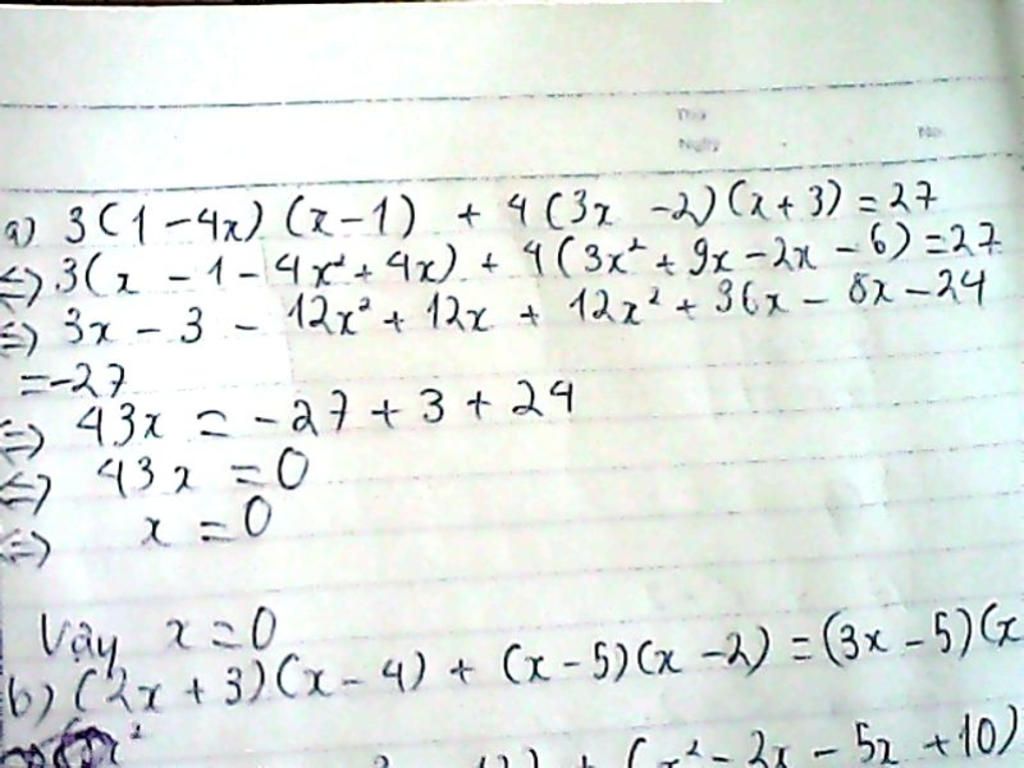 Thứ
Ngày No.
a) 3(1-4x)(x-1) + 4(3x-2)(x+3)=27
<=> 3(x-1-4x²+4x) + 4(3x²+9x-2x-6)=27
<=> 3x-3-12x²+12x+12x²+36x-8x-24
=-27
<=> 43x = -27+3+24
<=> 43x = 0
<=> x = 0
Vậy x=0
b) (2x+3)(x-4) + (x-5)(x-2) = (3x-5)(x
+ (x²-2x-5x+10)